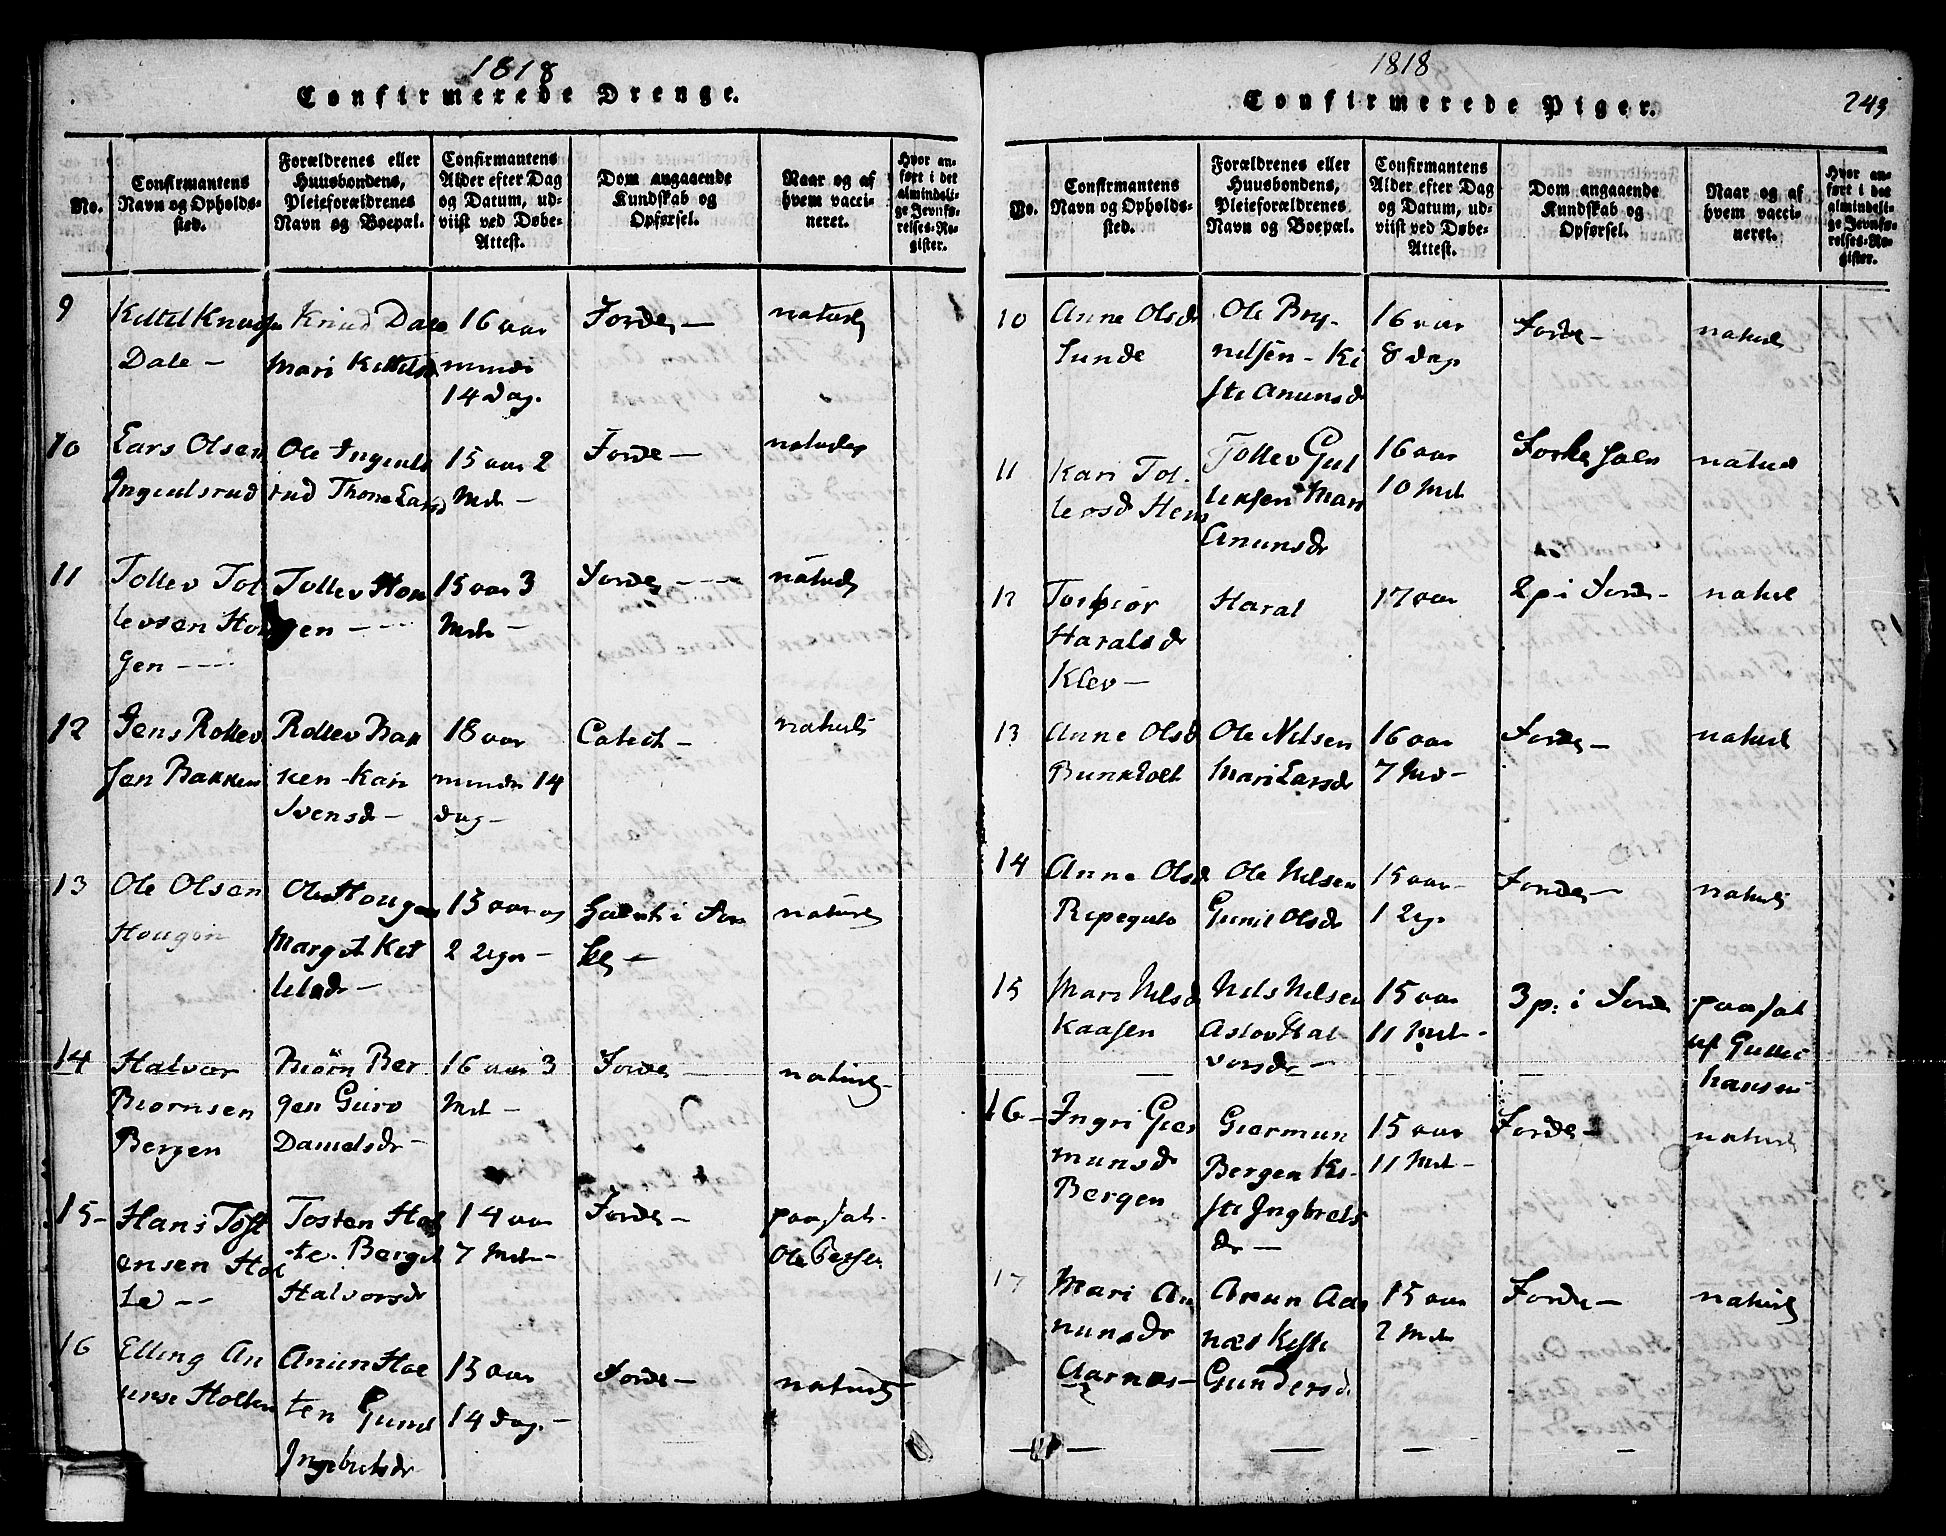 1818
Confirmerede Drenge.
No.
Confirmantens Navn og Opholdssted.
Forældrenes eller Huusbondens, Pleieforældrenes Navn og Boepæl.
Confirmantens Alder efter Dag og Datum, udviist ved Døbe-Attest.
Dom angaaende Kundskab og Opførsel.
Naar og af hvem vaccineret.
Hvor anført i det almindelige Jevnførelses-Register.
9
Kittil Knudsen
Dale –
Knud Dale
Mari Kittilsd
16 aar
mindr
14 dag.
naturl
10
Lars Olsen
Ingulsrud
Ole Inguls
rud Thone Larsd
15 aar 2
Md –
11
Tollev Tol
levsen Hou
gen –
Tollev Hou
gen –
15 aar 3
Md –
naturl
12
Jens Rollev
sen Bakken
Rollev Bak
ken – Kari
Svensdr –
18 aar
mindr 14
dag –
Catech –
naturl
13
Ole Olsen
Hougen
Ole Hougen
Margit Ket
lelsdr –
15 aar og
2 Ugr –
naturl
14
Halvor
Biørnsen
Bergen
Biörn Ber
gen Guro
Danielsdr –
16 aar 3
Md –
naturl
15 –
Hans Tost
ensen Hol
te –
Tosten Hol
te. Berget
Halvorsdr
14 aar
7 Md –
paasat.
Ole
16
Elling An
unse Holten
Anun Hol
ten Gunil
Ingebretsdr
15 aar
14 dag. –
naturl
1818
Confirmerede Piger.
243
No.
Confirmantens Navn og Opholdssted.
Forældrenes eller Huusbondens, Pleieforældrenes Navn og Boepæl.
Confirmantens Alder efter Dag og Datum, udviist ved Døbe-Attest.
Dom angaaende Kundskab og Opførsel.
Naar og af hvem vaccineret.
Hvor anført i det almindelige Jevnførelses-Register.
10
Anne Olsdr
Sunde
Ole Bry-
nilsen – Ki
sti Anunsd
16 aar
8 dag
naturl
11
Kari Tol-
levsd
Tollev Gul
leksen Mari
Anunsdr
16 aar
10 Md
naturl
12
Torbiör
Haralsdr
Klev –
Haral
17 aar
naturl
13
Anne Olsd
Bunkholt
Ole Nilsen
Mari Larsdr
16 aar
7 Md –
naturl
14
Anne Olsd
Ripegutu
Ole Nilsen
Gunil Olsdr
15 aar –
1 Ug –
naturl
15
Mari Nilsd
Kaasen
Nils Nilsen
Aslov Hal
vorsdr –
15 aar
11 Md –
paasat
af Gullic
hansen
16 –
Ingri Gier
munsdr
Bergen
Giermun
Bergen Ki-
sti Ingbrets
dr –
15 aar
11 Md –
naturl
17
Mari An
nunsdr
Aarnes –
Anun Aar
næs Kisti
Gundersd
15 aar
2 Md
naturl